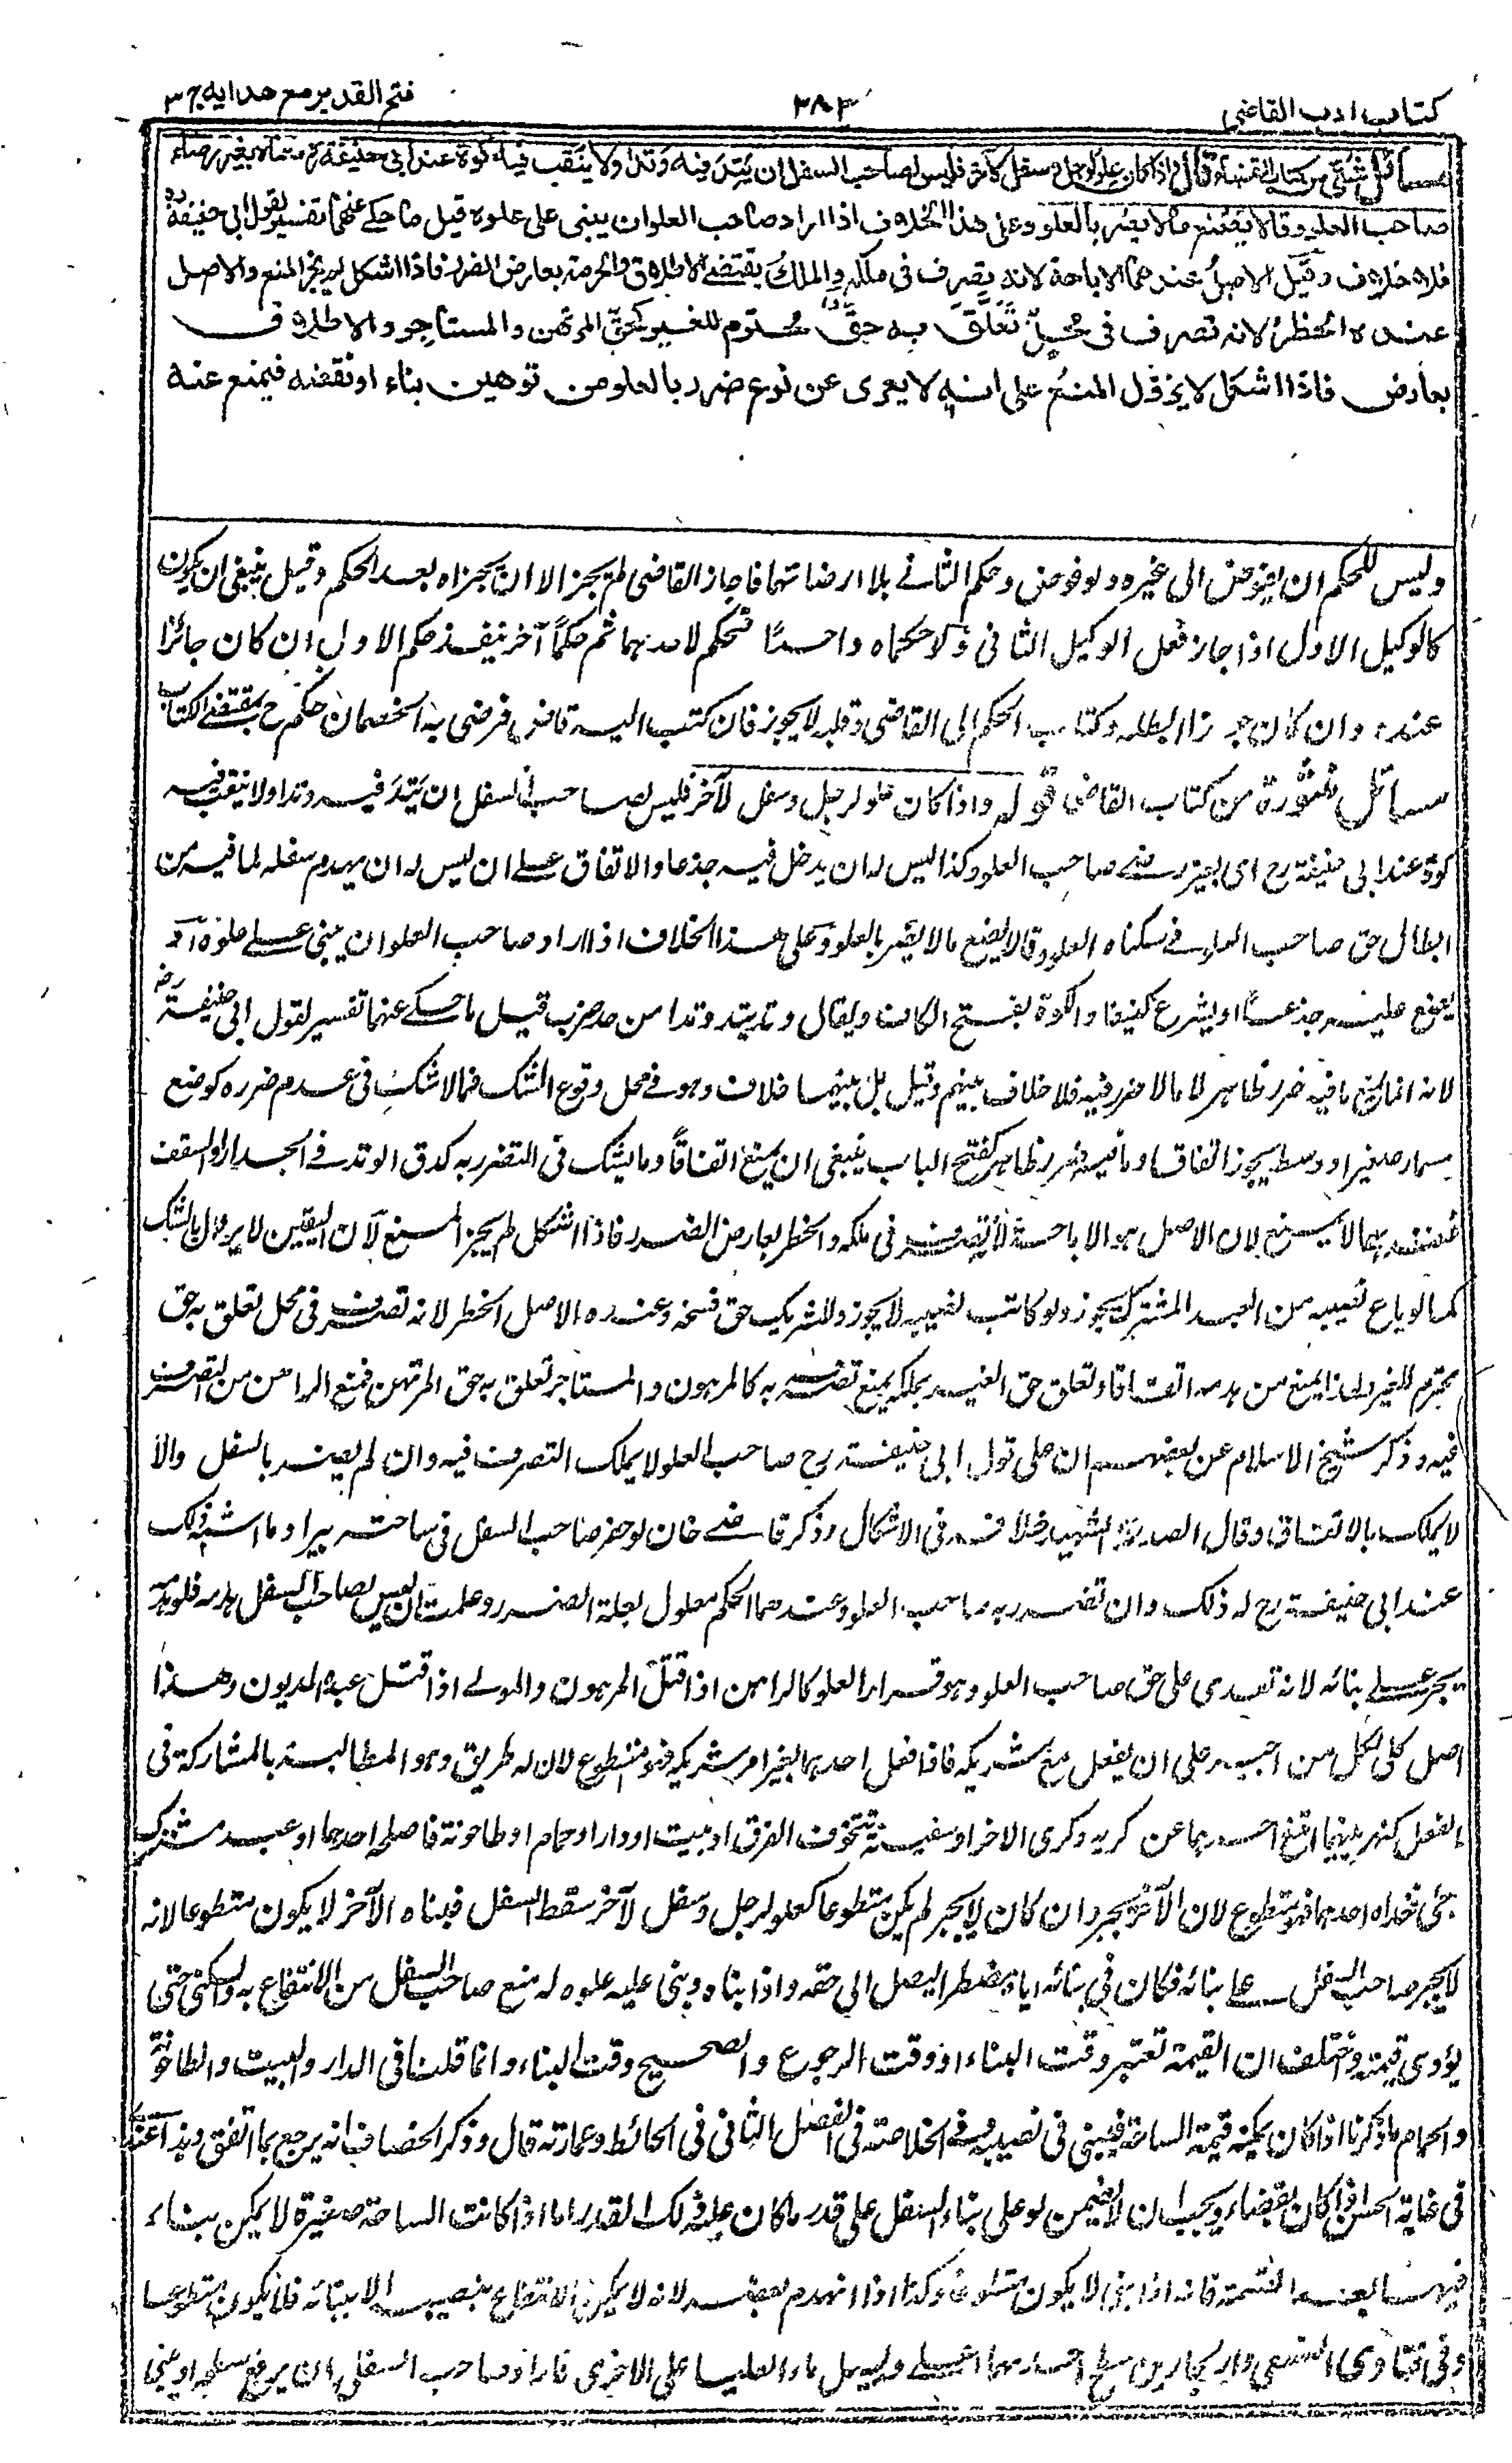 كتاب ادب القاضى
٣٨٣
فتح القدير مع هدايه ج ٣
مسائل شتى من كتاب القضاء قال واذا كان علو لرجل وسفل لآخر فليس لصاحب السفل ان يتد فيه وتدا ولا ينقب فيه كوة عند ابى حنيفة رح معناه بغير رضاء
صاحب العلو وقالا يصنع ما لا يضر بالعلو وعلى هذا الخلاف اذا اراد صاحب العلو ان يبنى على علوه قيل ما حكى عنهما تفسير لقول ابى حنيفة رح
فلا خلاف وقيل الاصل عندهما الاباحة لانه تصرف فى ملكه والملك يقتضى الاطلاق والحرمة بعارض الضرر فاذا اشكل لم يجز المنع والاصل
عنده الحظر لانه تصرف فى محل تعلق به حق محترم للغير كحق المرتهن والمستاجر والاطلاق
بعارض فاذا اشكل لا يزول المنع على انه لا يعرى عن نوع ضرر بالعلو من توهين بناء او نقضه فيمنع عنه
وليس للمحكم ان يفوض الى غيره ولو فوض وحكم الثانى بلا رضاتهما فاجاز القاضى لم يجز الا ان يجيزاه بعد الحكم وقيل ينبغى ان يكون
كالوكيل الاول اذا جاز فعل الوكيل الثانى ولو حكماه واحدا فحكم لاحدهما ثم حكما آخر ينفذ حكم الاول ان كان جائزا
عنده وان كان جورا ابطله وكتاب الحكم الى القاضى وقلبه لا يجوز فان كتب اليه قاض فرضى به الخصمان حكم ح بمقتضى الكتاب
مسائل منثورة من كتاب القاضى قوله واذا كان علو لرجل وسفل لآخر فليس لصاحب السفل ان يتد فيه وتدا ولا ينقب فيه
كوة عند ابى حنيفة رح اى بغير رضى صاحب العلو وكذا ليس له ان يدخل فيه جذعا والاتفاق على ان ليس له ان يهدم سفله لما فيه من
ابطال حق صاحب العلو فى سكناه العلو وقالا يصنع ما لا يضر بالعلو وعلى هذا الخلاف اذا اراد صاحب العلو ان يبنى على علوه او
يضع عليه جذعا او يشرع كنيفا والكوة بفتح الكاف ويقال وتد يتد وتدا من حد ضرب قيل ما حكى عنهما تفسير لقول ابى حنيفة رض
لانه انما يمنع ما فيه ضرر ظاهر لا ما لا ضرر فيه فلا خلاف بينهم وقيل بل بينهما خلاف وهو فى محل وقوع الشك فما لا شك فى عدم ضرره كوضع
مسمار صغير او وسط يجوز اتفاقا وما فيه ضرر ظاهر كفتح الباب ينبغى ان يمنع اتفاقا وما يشك فى التضرر به كدق الوتد فى الجدار او السقف
فعندهما لا يمنع لان الاصل هو الاباحة لانه تصرف فى ملكه والحظر بعارض الضرر فاذا اشكل لم يجز المنع لان اليقين لا يزول بالشك
كما لو باع نصيبه من العبد المشترك يجوز ولو كاتب نصيبه لا يجوز وللشريك حق فسخه وعنده الاصل الحظر لانه تصرف فى محل تعلق به حق
محترم للغير ولذا يمنع من هدمه اتفاقا وتعلق حق الغير بملكه يمنع تصرفه به كالمرهون والمستاجر تعلق به حق المرتهن فمنع الراهن من التصرف
فيه وذكر شيخ الاسلام عن بعضهم ان على قول ابى حنيفة رح صاحب العلو لا يملك التصرف فيه وان لم يضر بالسفل والا
لا يملك بالاتفاق وقال الصدر الشهيد خلافه فى الاشكال وذكر قاضى خان لو حفر صاحب السفل فى ساحته بيرا وما اشبه ذلك
عند ابى حنيفة رح له ذلك وان تضرر به صاحب العلو وعندهما الحكم معلول بعلة الضرر وعلمت ان ليس لصاحب السفل هدمه فلو هدمه
يجبر على بنائه لانه تعدى على حق صاحب العلو وهو قرار العلو كالراهن اذا قتل المرهون والمولى اذا قتل عبده المديون وهذا
اصل كلى لكل من اجبر على ان يفعل مع شريكه فاذا فعل احدهما بغير امر شريكه فهو متطوع لان له طريق وهو المطالبة بالمشاركة فى
الفعل كنهر بينهما امتنع احدهما عن كريه وكرى الاخر او سفينة تتخوف الغرق او بيت او دار او حمام او طاحونة فاصلح احدهما او عبد مشترك
جنى ففداه احدهما فهو متطوع لان الآخر يجبر وان كان لا يجبر لم يكن متطوعا كعلو لرجل وسفل لآخر سقط السفل فبناه الآخر لا يكون متطوعا لانه
لا يجبر صاحب السفل على بنائه فكان فى بنائه اياه مضطرا ليصل الى حقه واذا بناه وبنى عليه علوه له منع صاحب السفل من الانتفاع به والسكنى حتى
يؤدى قيمته واختلف ان القيمة تعتبر وقت البناء او وقت الرجوع والصحيح وقت البناء وانما قلنا فى الدار والبيت والطاحونة
والحمام ما ذكرنا اذا كان يمكنه قسمة الساحة فيبنى فى نصيبه وفى الخلاصة فى الفصل الثانى فى الحائط وعمارته قال وذكر الخصاف انه يرجع بما انفق وهذا
فى غاية الحسن اذا كان بقضاء ويجب ان لا يضمن لو على بناء السفل على قدر ما كان عليه فى ذلك القدر اما اذا كانت الساحة صغيرة لا يمكن بناء
فيها بعد القسمة فانه اذا بنى لا يكون متطوعا وكذا اذا انهدم بعضه لانه لا يمكن الانتفاع بنصيبه الا ببنائه فلا يكون متطوعا
وفى فتاوى وليسيل ماء العليا على الاخرى فاراد صاحب السفلى ان يرفع سطحه او يبنى